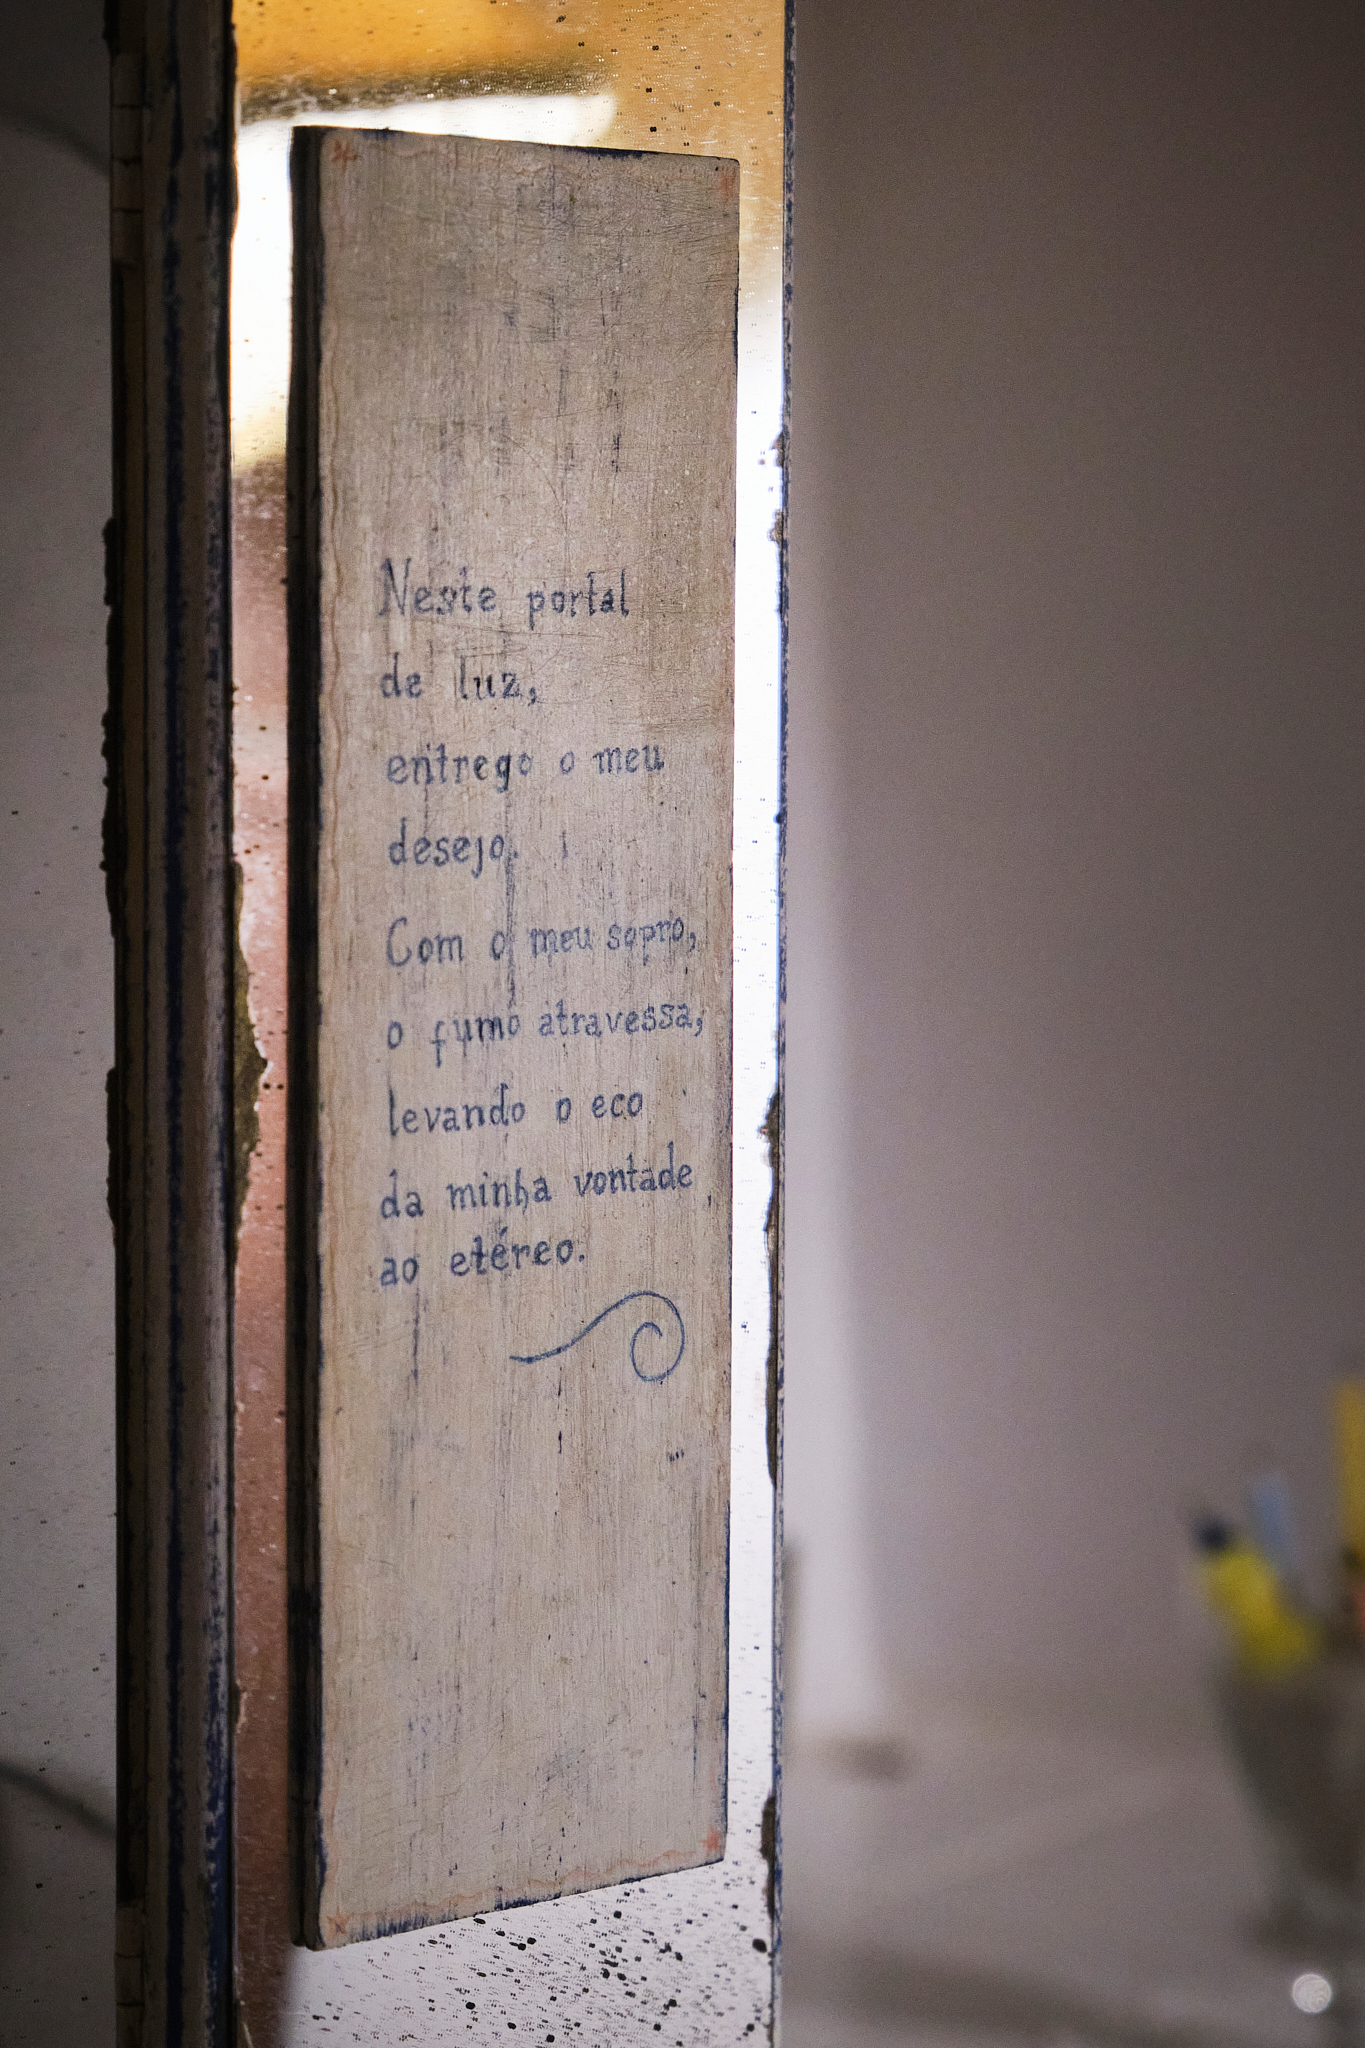 Neste portal
de luz,
entrego o meu
desejo.
Com o meu sopro,
o fumo atravessa,
levando o eco
da minha vontade
ao etéreo.